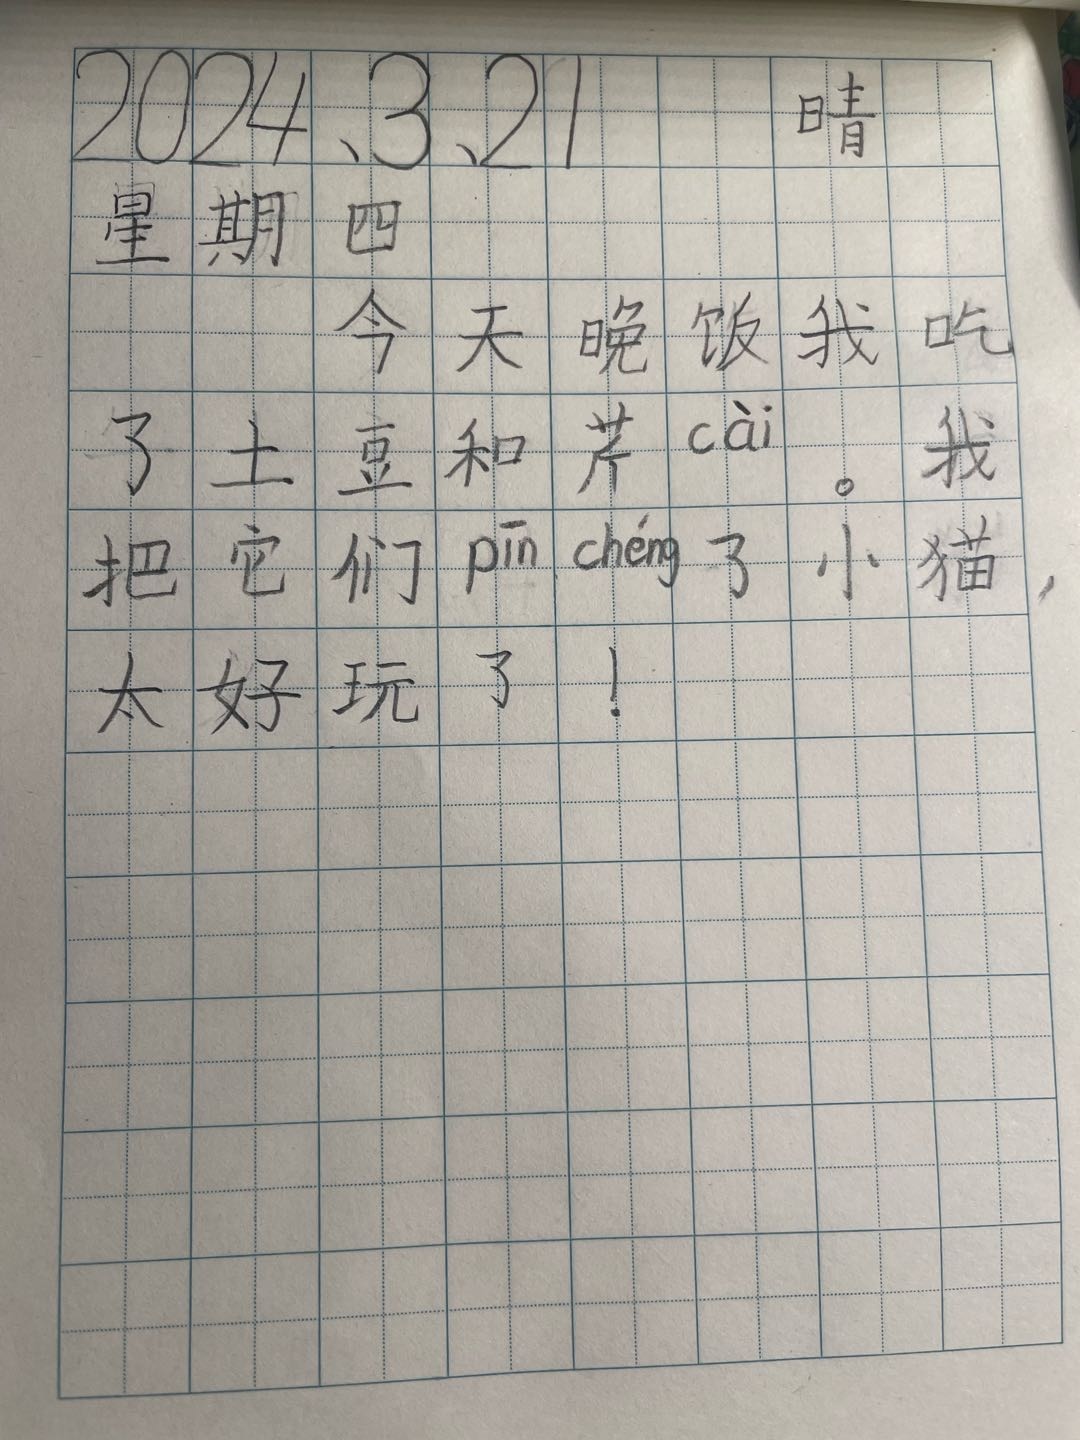 2024、3、21 晴
星期四
今天晚饭我吃
了土豆和芹cài。我
把它们pīn chéng了小猫，
太好玩了！